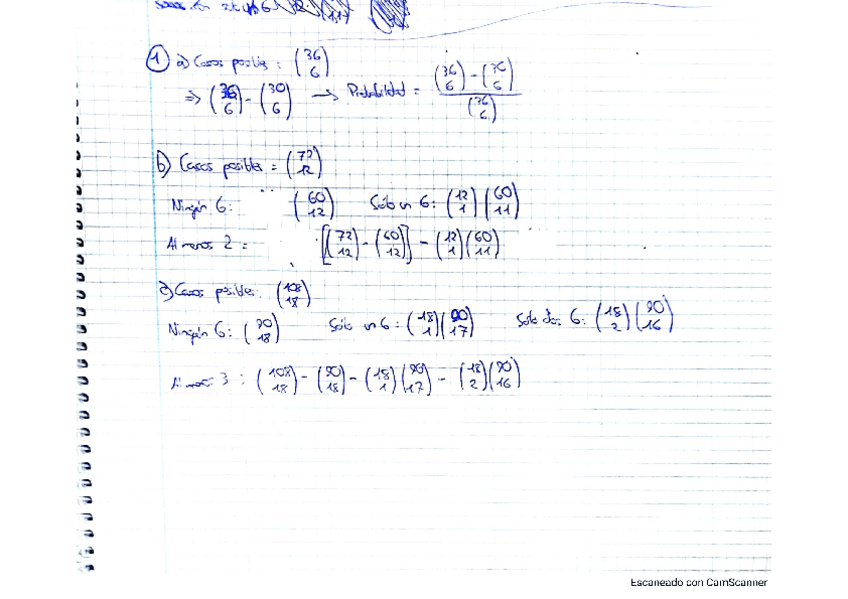 ① a) Casos posibles : (36 6)
⇒ (36 6) - (30 6) → Probabilidad = ((36 6) - (36 6)) / (36 6)
b) Casos posibles = (72 12)
Ningún 6: (60 12) Sólo un 6: (12 1)(60 11)
Al menos 2 = [(72 12) - (60 12)] - (12 1)(60 11)
c) Casos posibles: (108 18)
Ningún 6: (90 18) Sólo un 6: (18 1)(90 17) Sólo dos 6: (18 2)(90 16)
Al menos 3 : (108 18) - (90 18) - (18 1)(90 17) - (18 2)(90 16)
Escaneado con CamScanner